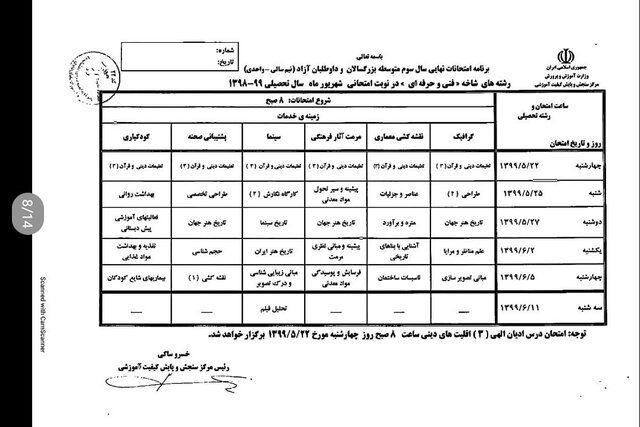 باسمه تعالی
جمهوری اسلامی ایران
وزارت آموزش و پرورش
مرکز سنجش و پایش کیفیت آموزشی
شماره:
تاریخ:
برنامه امتحانات نهایی سال سوم متوسطه بزرگسالان و داوطلبان آزاد (نیم سالی - واحدی)
رشته های شاخه « فنی و حرفه ای » در نوبت امتحانی شهریور ماه سال تحصیلی ۹۹-۱۳۹۸
ساعت امتحان و رشته تحصیلی
روز و تاریخ امتحان
شروع امتحانات: ۸ صبح
زمینه ی خدمات
گرافیک نقشه کشی معماری مرمت آثار فرهنگی سینما پشتیبانی صحنه کودکیاری
چهارشنبه ۱۳۹۹/۵/۲۲ تعلیمات دینی و قرآن (۳) تعلیمات دینی و قرآن (۳) تعلیمات دینی و قرآن (۳) تعلیمات دینی و قرآن (۳) تعلیمات دینی و قرآن (۳) تعلیمات دینی و قرآن (۳)
شنبه ۱۳۹۹/۵/۲۵ طراحی (۲) عناصر و جزئیات پیشینه و سیر تحول مواد معدنی کارگاه نگارش (۲) طراحی تخصصی بهداشت روانی
دوشنبه ۱۳۹۹/۵/۲۷ تاریخ هنر جهان متره و برآورد تاریخ هنر جهان تاریخ سینما تاریخ هنر جهان فعالیتهای آموزشی پیش دبستانی
یکشنبه ۱۳۹۹/۶/۲ علم مناظر و مرایا آشنایی با بناهای تاریخی پیشینه و مبانی نظری مرمت تاریخ هنر ایران حجم شناسی تغذیه و بهداشت مواد غذایی
چهارشنبه ۱۳۹۹/۶/۵ مبانی تصویر سازی تاسیسات ساختمان فرسایش و پوسیدگی مواد معدنی مبانی زیبایی شناسی و درک تصویر نقشه کشی (۱) بیماریهای شایع کودکان
سه شنبه ۱۳۹۹/۶/۱۱ — — — تحلیل فیلم — —
توجه: امتحان درس ادیان الهی (۳) اقلیت های دینی ساعت ۸ صبح روز چهارشنبه مورخ ۱۳۹۹/۵/۲۲ برگزار خواهد شد.
خسرو ساکی
رئیس مرکز سنجش و پایش کیفیت آموزشی
8/14
Scanned with CamScanner